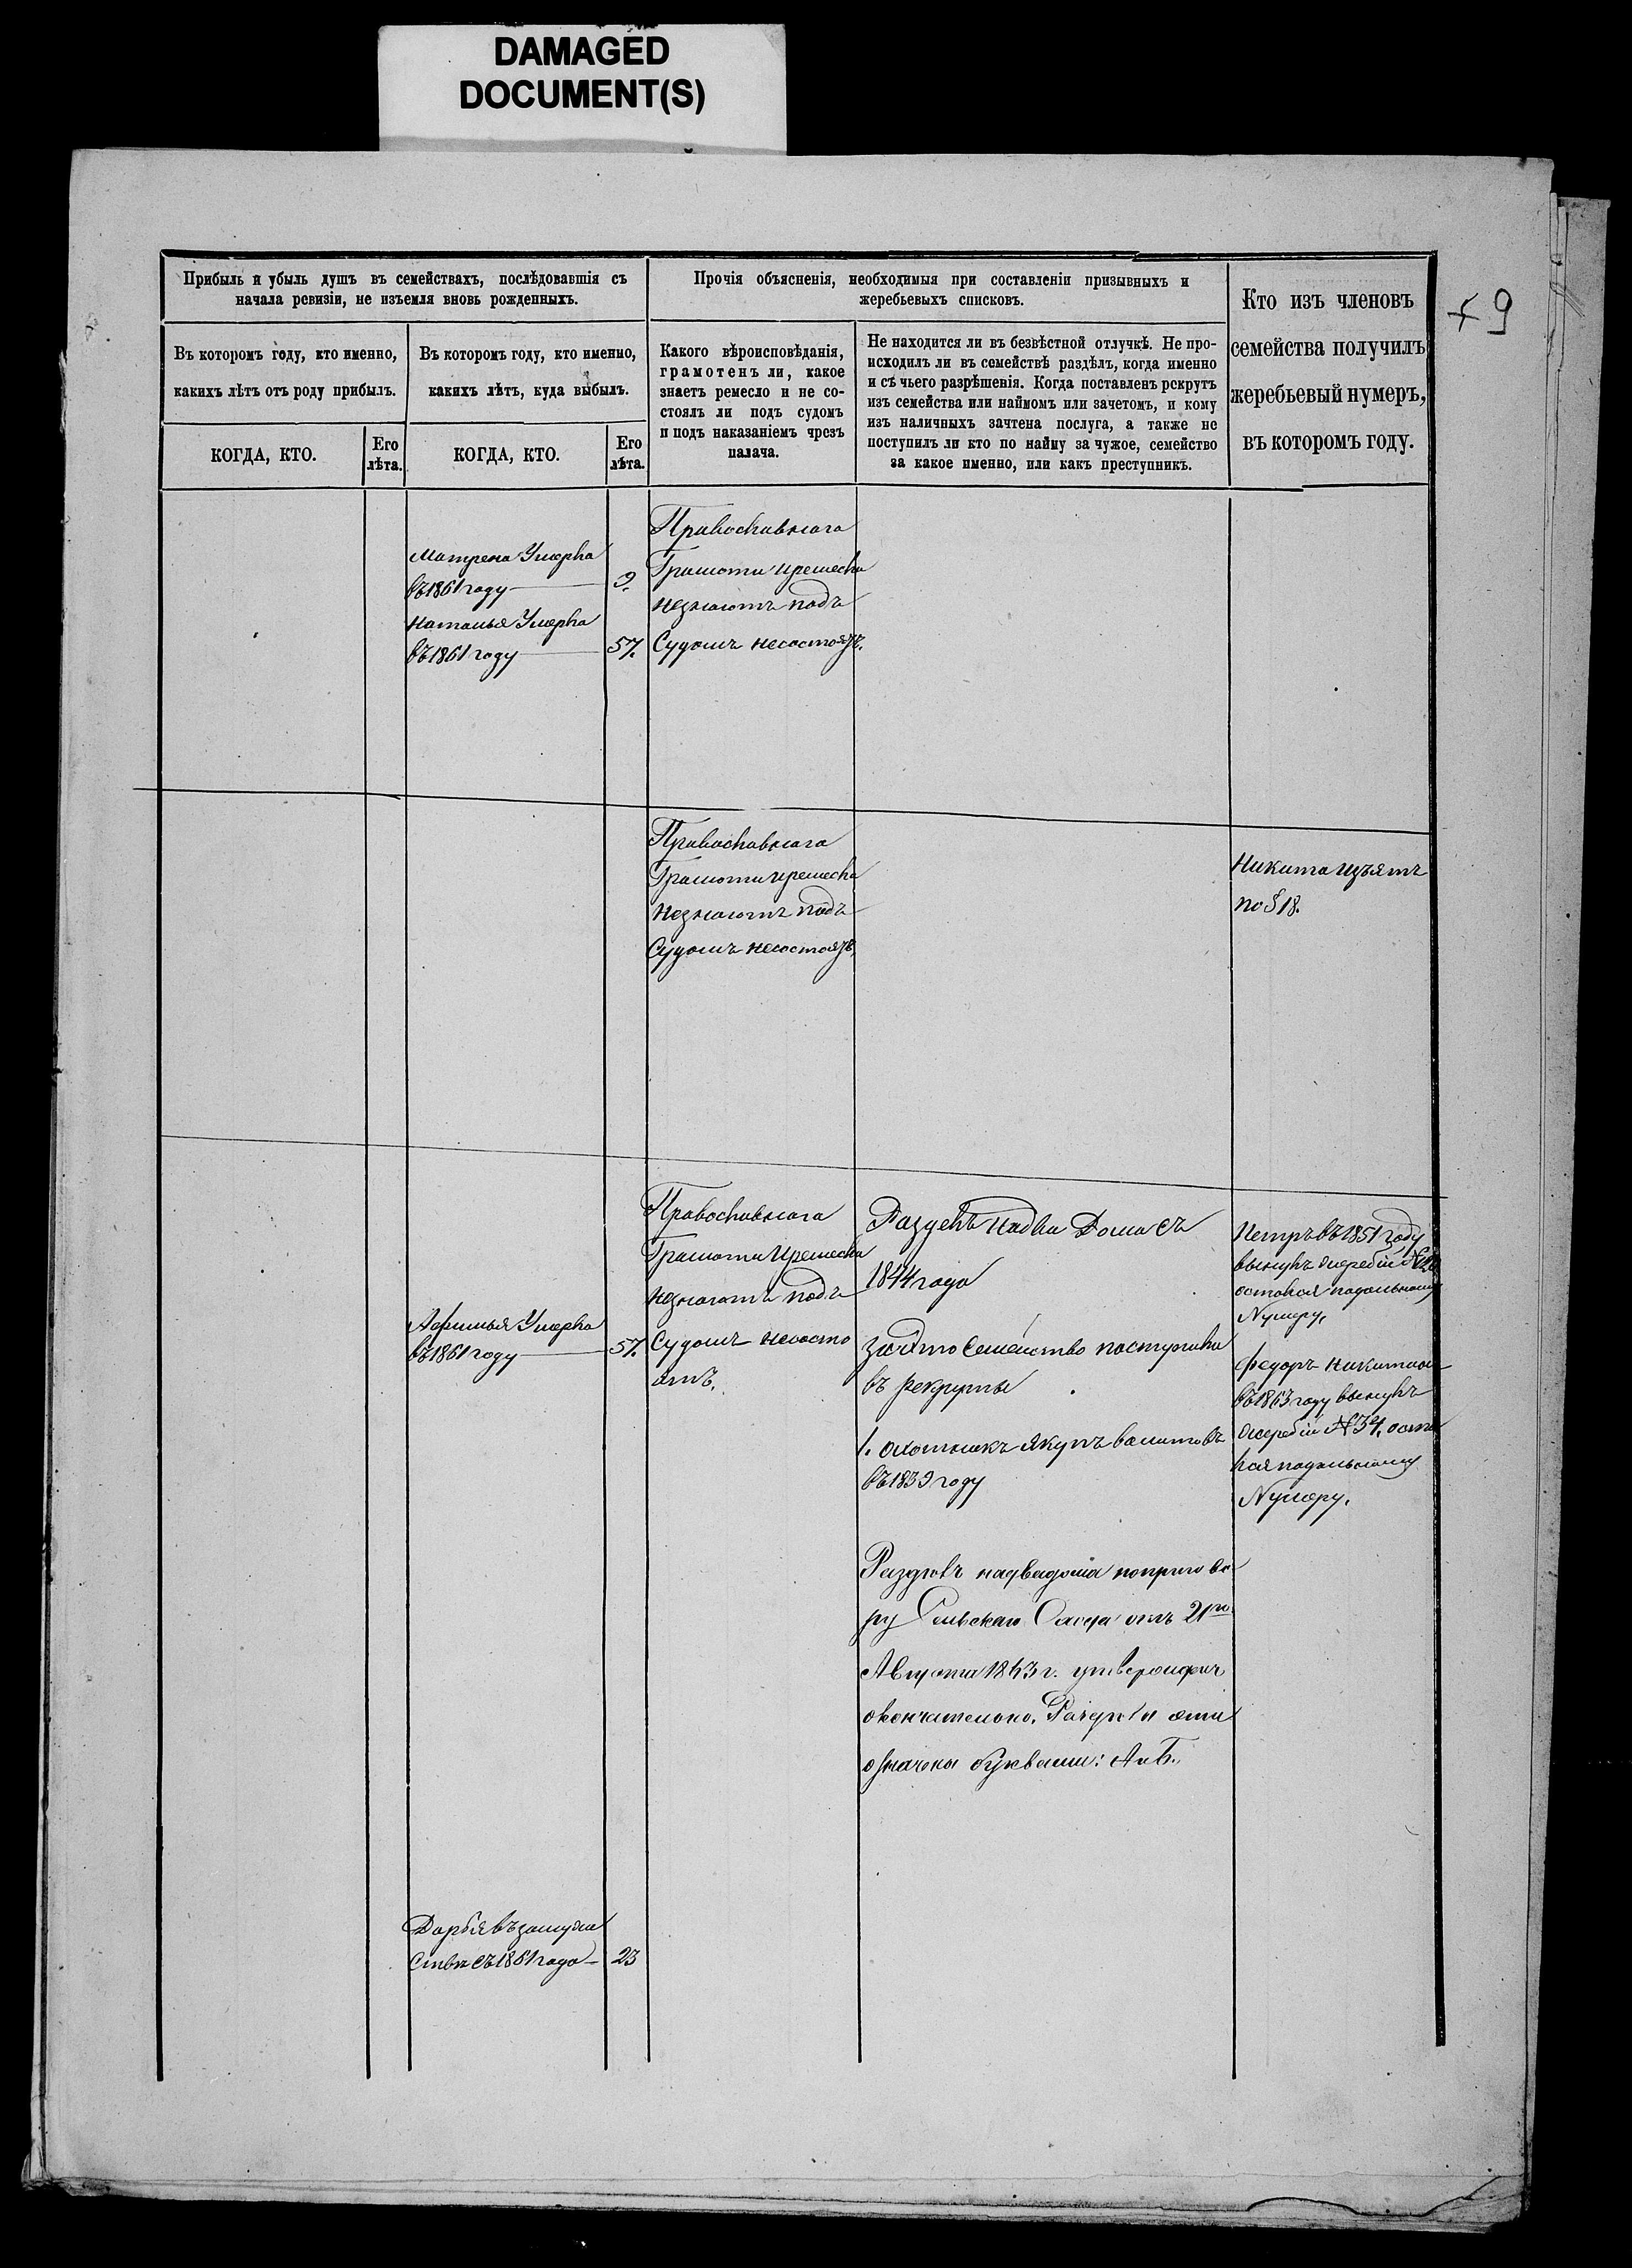 DAMAGED
DOCUMENT(S)
+ 9
Прибыль и убыль душъ въ семействахъ, послѣдовавшія съ
начала ревизіи, не изъемля вновь рожденныхъ.
Прочія объясненія, необходимыя при составленіи призывныхъ и
жеребьевыхъ списковъ.
Кто изъ членовъ
семейства получилъ
жеребьевый нумеръ,
въ которомъ году.
Въ которомъ году, кто именно,
какихъ лѣтъ отъ роду прибылъ.
Въ которомъ году, кто именно,
какихъ лѣтъ, куда выбылъ.
Какого вѣроисповѣданія,
грамотенъ ли, какое
знаетъ ремесло и не со-
стоялъ ли подъ судомъ
и подъ наказаніемъ чрезъ
палача.
Не находится ли въ безвѣстной отлучкѣ. Не про-
исходилъ ли въ семействѣ раздѣлъ, когда именно
и съ чьего разрѣшенія. Когда поставленъ рекрутъ
изъ семейства или наймомъ или зачетомъ, и кому
изъ наличныхъ зачтена послуга, а также не
поступилъ ли кто по найму за чужое, семейство
за какое именно, или какъ преступникъ.
КОГДА, КТО.
Его
лѣта.
КОГДА, КТО.
Его
лѣта.
Матрена Умерла
въ 1861 году
9.
Наталья Умерла
въ 1861 году
57.
Православнаго
Грамоти иремесла
незнаютъ подъ
Судомъ несостоятъ.
Православнаго
Грамоти иремесла
незнаютъ подъ
Судомъ несостоятъ,
Никита изъятъ
по § 18.
Православнаго
Грамоти иремесла
незнаютъ подъ
Судомъ несосто
ятъ.
Афимья Умерла
въ 1861 году
57.
Раздѣлъ надва Дома съ
1844 года
заэто семейство поступили
въ рекруты
1. охотникъ якупъ валитовъ
въ 1839 году
Раздѣлъ надвадома попригово
ру Сельскаго Схода отъ 21го
Августа 1863 г.
окончательно.
означены буквами: А и Б.
Петръ въ 1851 году
вынулъ жеребій
остался подальному
Нумеру,
Федоръ Никитинъ
въ 1863 году вынулъ
жеребій № 34, оста
лся подальному
Нумеру.
Дарья въ замуже
ствѣ съ 1861 года
23